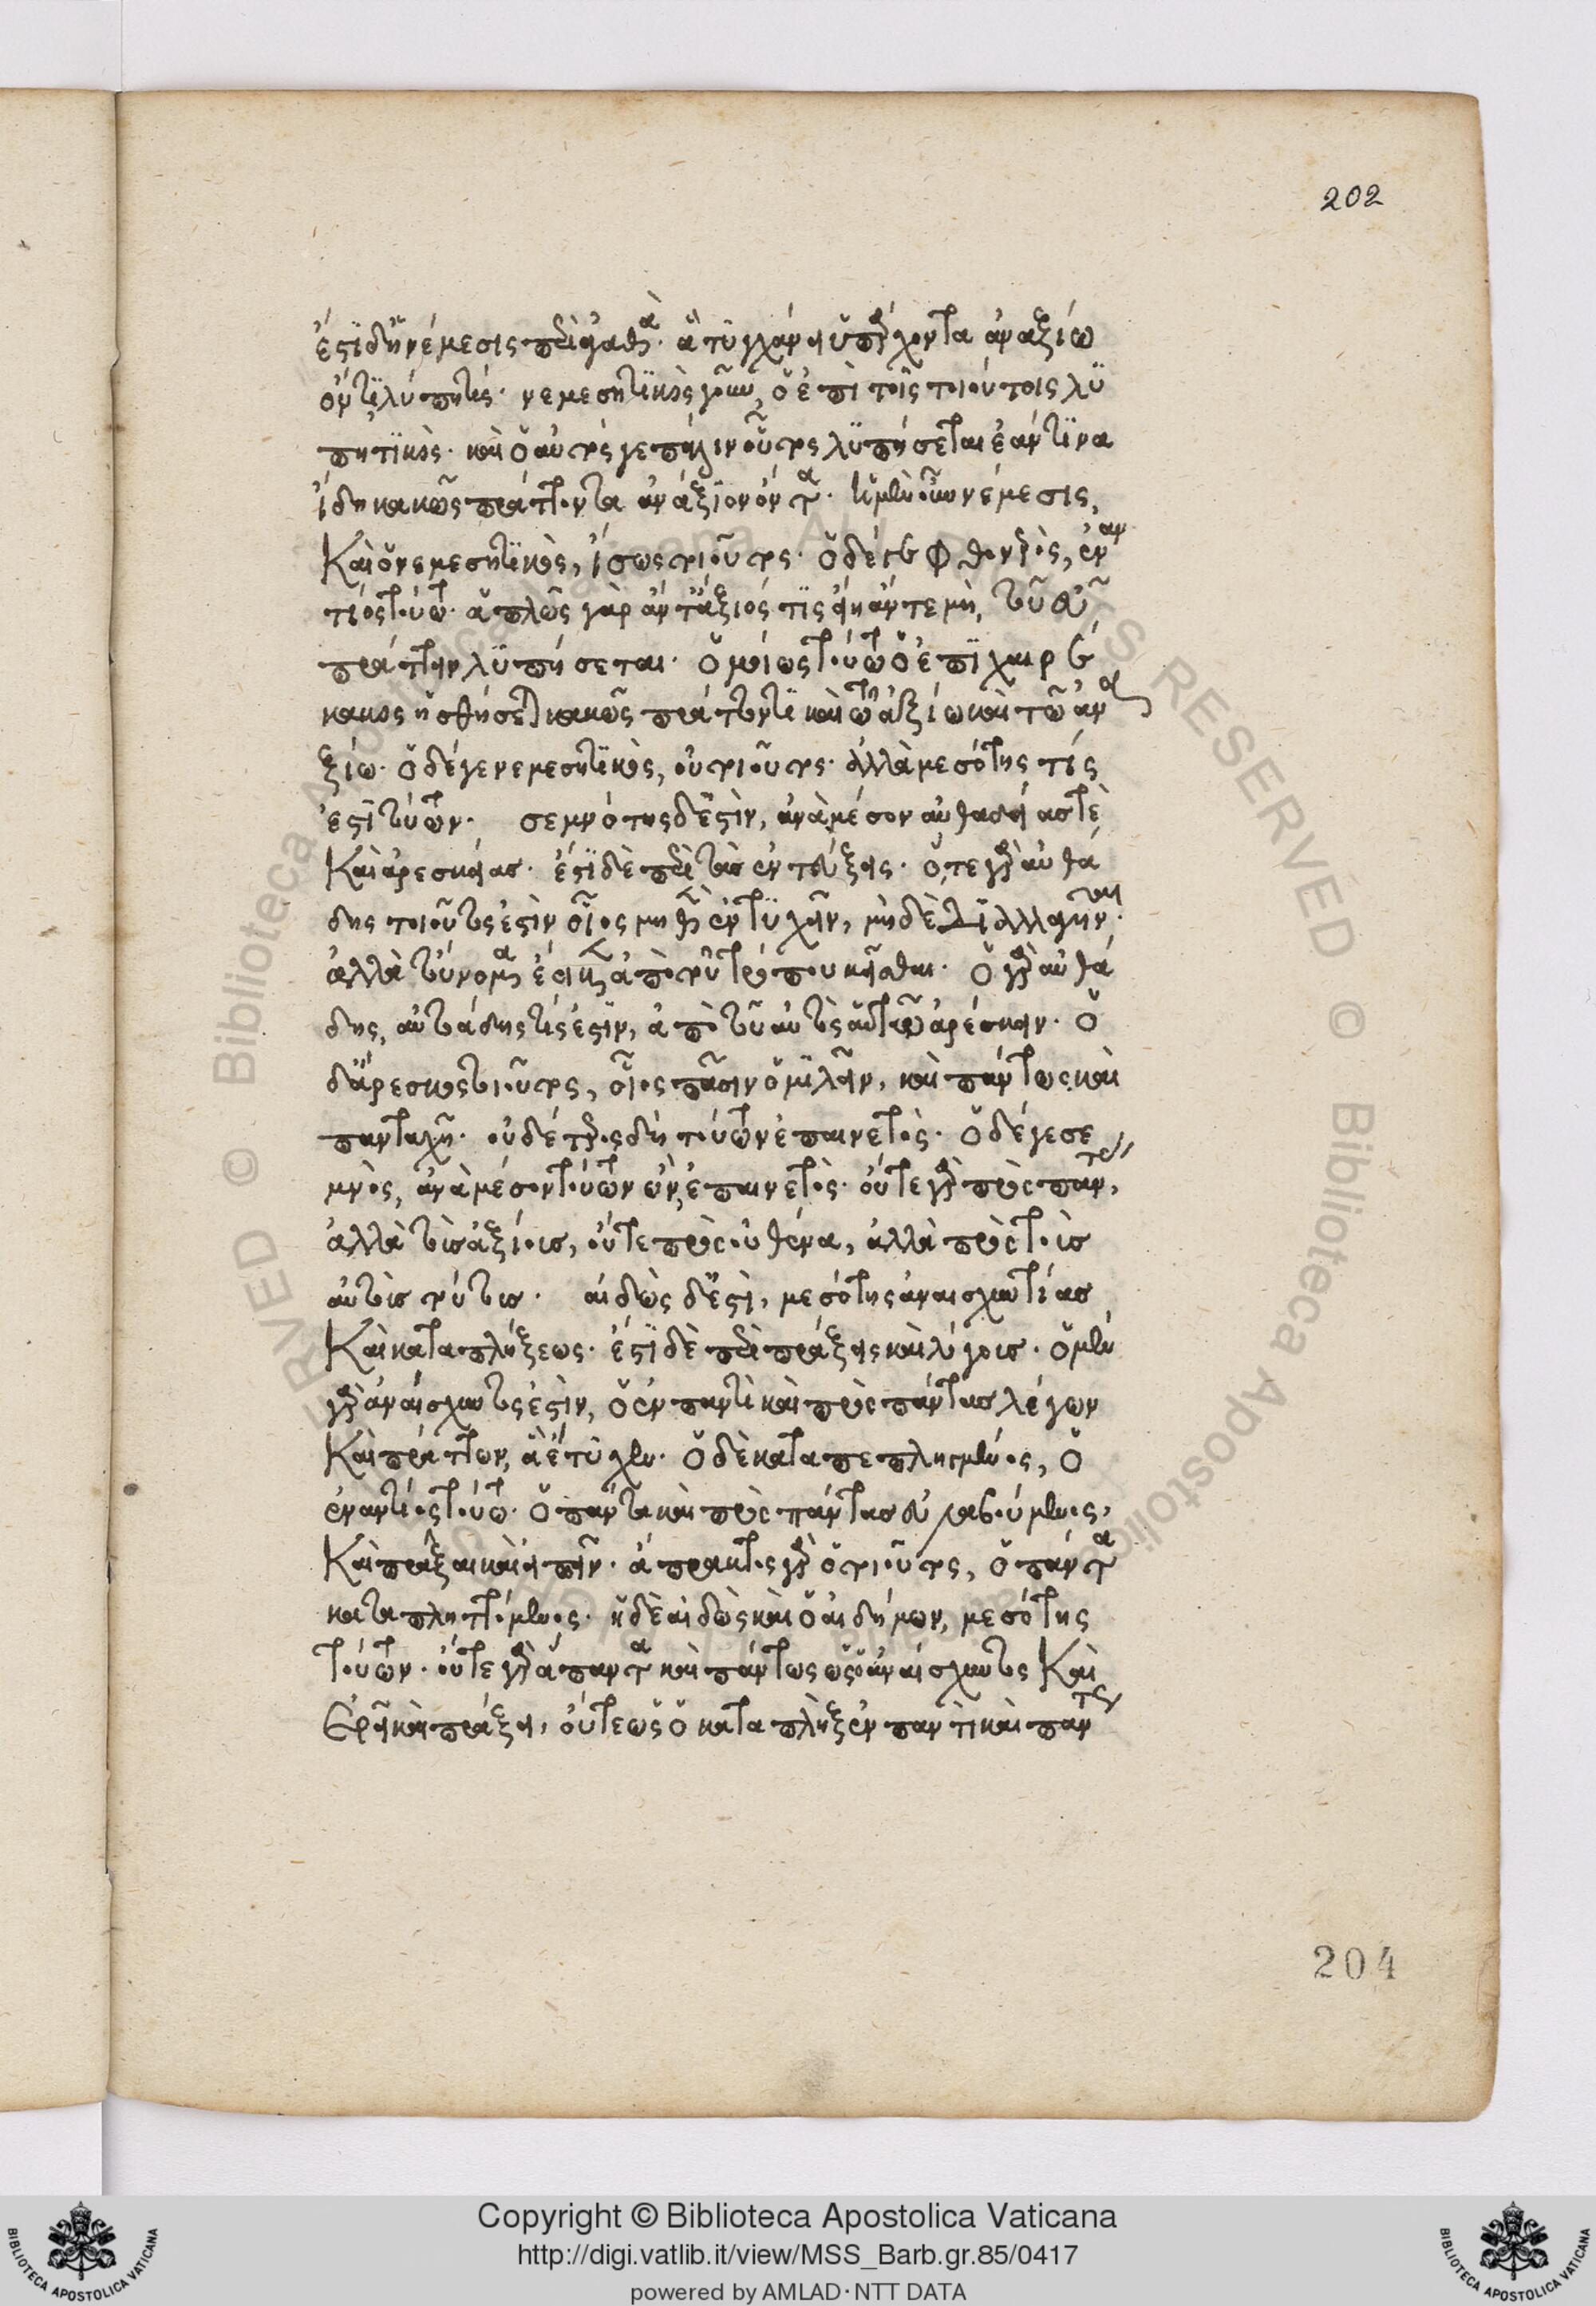 202
ἔστι δ' ἡ νέμεσις περὶ ἀγαθὰ ἃ τυγχάνει ὑπάρχοντα ἀναξίω
ὄντι λύπη τίς· νεμεσητικὸς γοῦν, ὁ ἐπὶ τοῖς τοιούτοις λυ
πητικός· καὶ ὁ αὐτός γε πάλιν οὗτος λυπήσεται ἐάν τινα
ἴδη κακῶς πράττοντα ἀνάξιον ὄντα· ἡ μὲν οὖν νέμεσις,
καὶ ὁ νεμεσητικὸς, ἴσως τοιοῦτος· ὁ δέ γε φθονερὸς, ἐναν
τίος τούτω· ἁπλῶς γὰρ ἄν τ' ἄξιός τις ἦ ἄν τε μὴ, τοῦ εὖ
πράττειν λυπήσεται· ὁμοίως τούτω ὁ ἐπιχαιρέ
κακος ἡσθήσεται κακῶς πράττοντι καὶ τῶ ἀξίω καὶ τῶ ἀνα
ξίω· ὁ δέ γε νεμεσητικὸς, οὐ τοιοῦτος· ἀλλὰ μεσότης τίς
ἐστι τούτων· σεμνότης δ' ἐστὶν, ἀνὰ μέσον αὐθαδείας τὲ
καὶ ἀρεσκείας· ἔστι δὲ περὶ τὰς ἐντεύξεις· ὅ τε γὰρ αὐθά
δης τοιοῦτός ἐστιν οἷος μηθενὶ ἐντυχεῖν, μὴ δὲ διαλλαγῆναι·
ἀλλὰ τοὔνομα ἔοικεν ἀπὸ τοῦ τρόπου κεῖσθαι· ὁ γὰρ αὐθά
δης, αὐτοάδης τίς ἐστιν, ἀπὸ τοῦ αὐτὸς αὑτῶ ἀρέσκειν· ὁ
δ' ἄρεσκος τοιοῦτος, οἷος πᾶσιν ὁμιλεῖν, καὶ πάντως καὶ
πανταχῆ· οὐδέτερος δὴ τούτων ἐπαινετός· ὁ δέ γε σε
μνὸς, ἀνὰ μέσον τούτων ὢν, ἐπαινετός· οὔτε γὰρ πρὸς πάντας,
ἀλλὰ τοῖς ἀξίοις, οὔτε πρὸς οὐθένα, ἀλλὰ πρὸς τοῖς
αὐτοῖς τούτοις· αἰδὼς δ' ἐστὶ, μεσότης ἀναισχυντίας
καὶ καταπλήξεως· ἔστι δὲ περὶ πράξεις καὶ λόγοις· ὁ μὲν
γὰρ ἀναίσχυντός ἐστιν, ὁ ἐν παντὶ καὶ πρὸς πάντας λέγων
καὶ πράττων, ἃ ἔτυχεν· ὁ δὲ καταπεπληγμένος, ὁ
ἐναντίος τούτω· ὁ πάντα καὶ πρὸς πάντας εὐλαβούμενος,
καὶ πρᾶξαι καὶ εἰπεῖν· ἄπρακτος γὰρ ὁ τοιοῦτος, ὁ πάντα
καταπληττόμενος· ἡ δὲ αἰδὼς καὶ ὁ αἰδήμων, μεσότης
τούτων· οὔτε γὰρ ἅπαντα καὶ πάντως ὡς ὁ ἀναίσχυντος καὶ
ἐρεῖ καὶ πράξει, οὔτε ὡς ὁ καταπλὴξ ἐν παντὶ καὶ πάντως
204
Copyright © Biblioteca Apostolica Vaticana
http://digi.vatlib.it/view/MSS_Barb.gr.85/0417
powered by AMLAD·NTT DATA